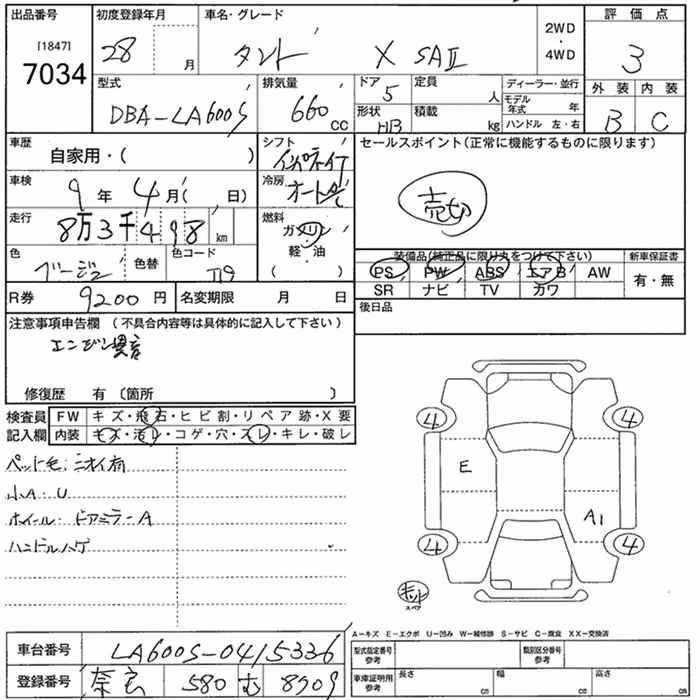 出品番号 初度登録年月 車名・グレード 2WD・4WD 評価点
[1847]
7034 28 月 タント X SAⅡ 3
型式 排気量 ドア 5 定員 人 ディーラー・並行 外装 内装
DBA-LA600S 660 CC 形状 HB 積載 kg モデル年式 年 B C
ハンドル 左・右
車歴 自家用・( ) シフト インパネAT セールスポイント(正常に機能するものに限ります)
車検 9年 4月( 日) 冷房 オート 売切
走行 8万3千498km 燃料 ガソリン
軽・油
( )
色 ベージュ 色替 色コード T19
装備品(純正品に限り丸をつけて下さい) 新車保証書
PS PW ABS エアB AW 有・無
SR ナビ TV カワ
R券 9200円 名変期限 月 日 後日品
注意事項申告欄 (不具合内容等は具体的に記入して下さい)
エンジン異音
修復歴 有 〔箇所 〕
検査員 FW キズ・飛石・ヒビ割・リペア跡・X要
記入欄 内装 キズ・汚レ・コゲ・穴・スレ・キレ・破レ
ペット毛・ニオイ有
小A・U
ホイール・ドアミラーA
ハンドルハゲ
4 4
E
A1
4 4
キット
スペア
A-キズ E-エクボ U-凹み W-補修跡 S-サビ C-腐食 XX-交換済
車台番号 LA600S-0415336 型式指定番号 参考 類別区分番号 参考
登録番号 奈良 580 む 8909 車庫証明用 参考 長さ cm 幅 cm 高さ cm